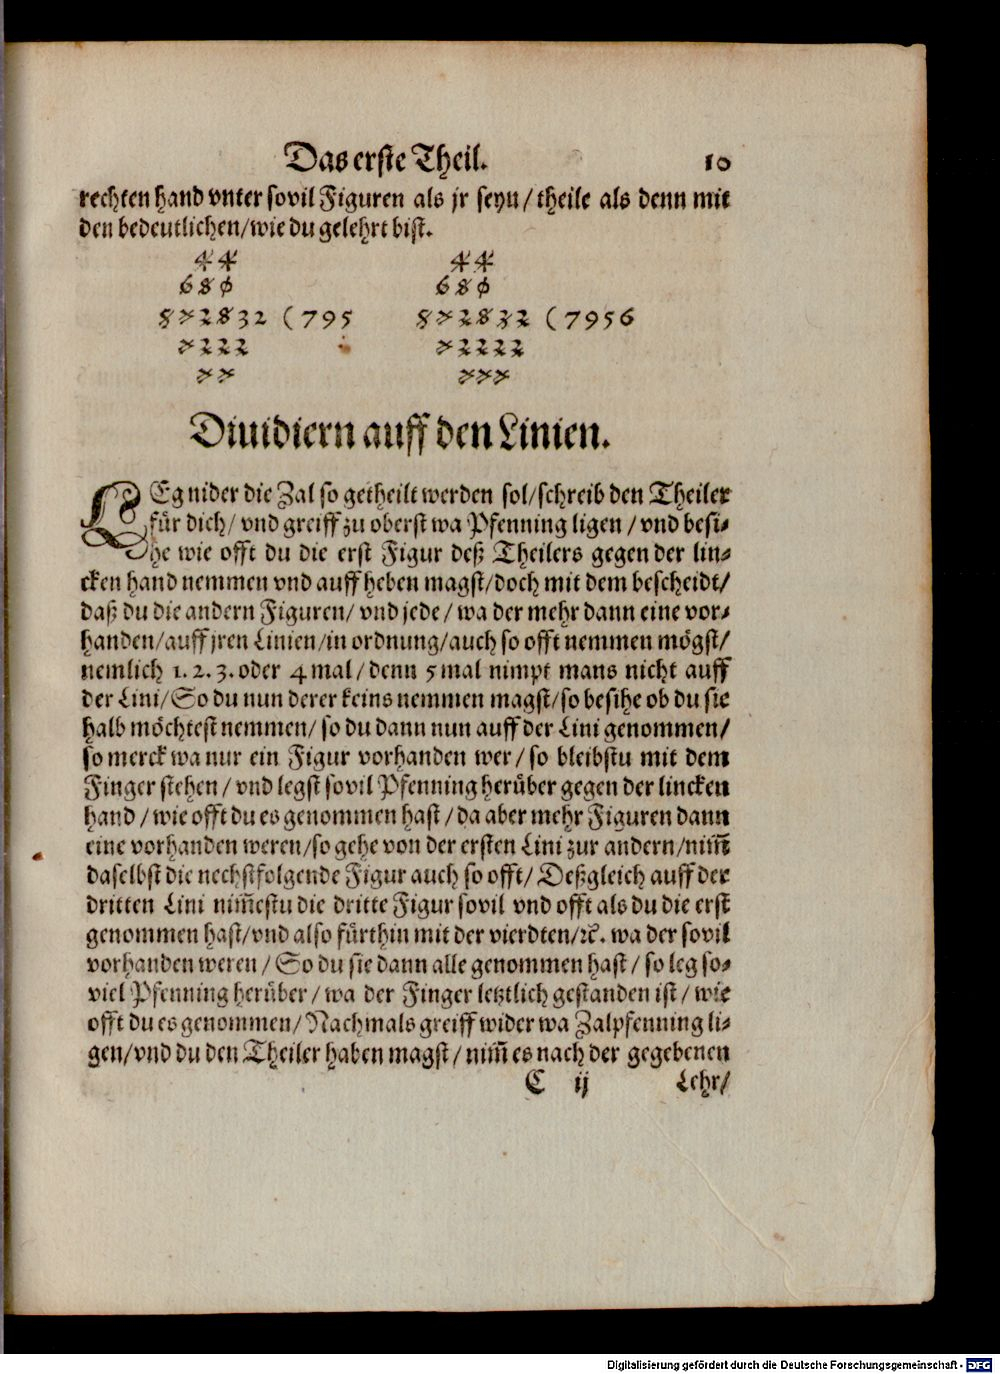 Das erste Theil. 10
rechten hand vnter sovil Figuren als jr seyn/ theile als denn mit
den bedeutlichen/ wie du gelehrt bist.
44 44
680 680
872832 (795 872832 (7956
1222 12222
11 111
Diuidiern auff den Linien.
LEg nider die Zal so getheilt werden sol/ schreib den Theiler
für dich/ vnd greiff zu oberst wa Pfenning ligen / vnd besi-
he wie offt du die erst Figur deß Theilers gegen der lin-
cken hand nemmen vnd auff heben magst/ doch mit dem bescheidt/
daß du die andern Figuren/ vnd jede / wa der mehr dann eine vor-
handen/ auff jren Linien/ in ordnung/ auch so offt nemmen mögst/
nemlich 1. 2. 3. oder 4 mal / denn 5 mal nimpt mans nicht auff
der Lini/ So du nun derer keins nemmen magst/ so besihe ob du sie
halb möchtest nemmen/ so du dann nun auff der Lini genommen/
so merck wa nur ein Figur vorhanden wer / so bleibstu mit dem
Finger stehen / vnd legst sovil Pfenning herüber gegen der lincken
hand / wie offt du es genommen hast / da aber mehr Figuren dann
eine vorhanden weren/ so gehe von der ersten Lini zur andern/ nim̃
daselbst die nechstfolgende Figur auch so offt/ Deßgleich auff der
dritten Lini nim̃estu die dritte Figur sovil vnd offt als du die erst
genommen hast/ vnd also fürthin mit der vierdten/ ꝛc. wa der sovil
vorhanden weren / So du sie dann alle genommen hast / so leg so-
viel Pfenning herüber / wa der Finger letztlich gestanden ist / wie
offt du es genommen/ Nachmals greiff wider wa Zalpfenning li-
gen/ vnd du den Theiler haben magst / nim̃ es nach der gegebenen
C ij Lehr/
Digitalisierung gefördert durch die Deutsche Forschungsgemeinschaft - DFG